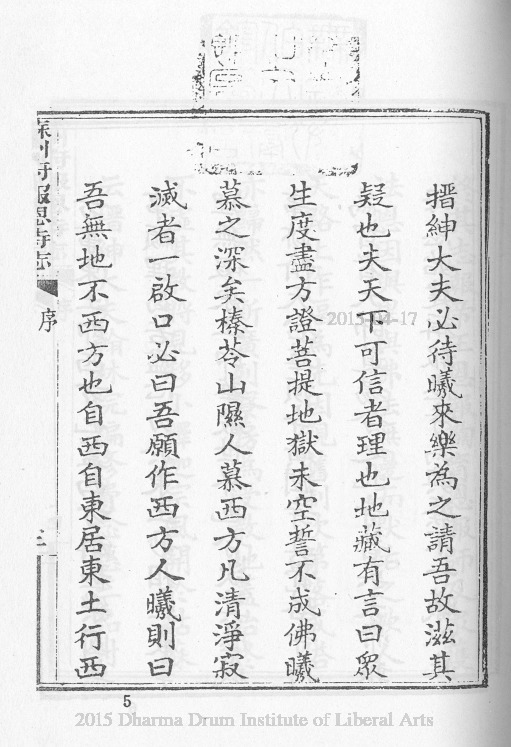 搢紳大夫必待曦來樂為之請吾故滋其
疑也夫天下可信者理也地藏有言曰眾
生度盡方證菩提地獄未空誓不成佛曦
慕之深矣榛苓山隰人慕西方凡清淨寂
滅者一啟口必曰吾願作西方人曦則曰
吾無地不西方也自西自東居東土行西
蘇州府報恩寺志
序
2015-04-17
5
2015 Dharma Drum Institute of Liberal Arts